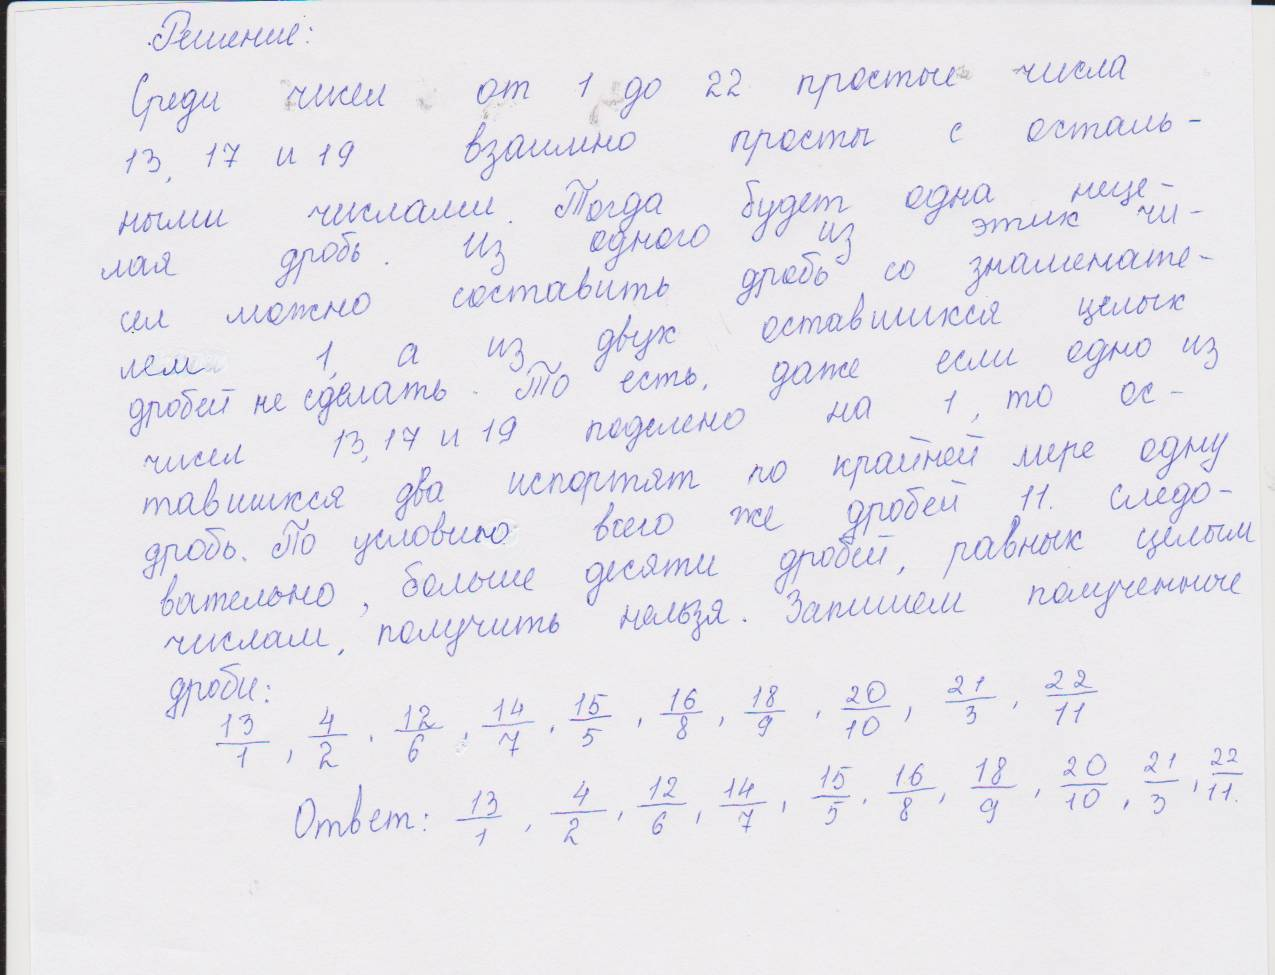 Решение:
Среди чисел от 1 до 22 простые числа
13, 17 и 19 взаимно просты с осталь-
ными числами. Тогда будет одна неце-
лая дробь. Из одного из этих чи-
сел можно составить дробь со знаменате-
лем 1, а из двух оставшихся целых
дробей не сделать. То есть, даже если одно из
чисел 13, 17 и 19 поделено на 1, то ос-
тавшихся два испортят по крайней мере одну
дробь. По условию всего же дробей 11. Следо-
вательно, больше десяти дробей, равных целым
числам, получить нельзя. Запишем полученные
дроби:
13/1, 4/2, 12/6, 14/7, 15/5, 16/8, 18/9, 20/10, 21/3, 22/11
Ответ: 13/1, 4/2, 12/6, 14/7, 15/5, 16/8, 18/9, 20/10, 21/3, 22/11.